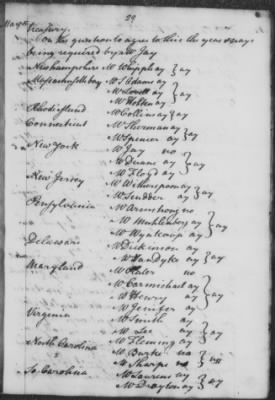 29
Treasury.
On the question to agree to this the yeas & nays
being required by Mr Jay
Newhampshire Mr Whipple ay } ay
Massachusettsbay Mr S Adams ay
Mr Lovell ay } ay
Mr Holten ay
Rhodisland Mr Collins ay } ay
Connecticut Mr Sherman ay
Mr Spencer ay } ay
New York Mr Jay no
Mr Duane ay } ay
Mr Floyd ay
New Jersey Mr Witherspoon ay
Mr Scudder ay } ay
Pensylvania Mr Armstrong no
Mr Muhlenberg ay } ay
Mr Wynkoop ay
Delaware Mr Dickinson ay
Mr Vandyke ay } ay
Maryland Mr Plater no
Mr Carmichael ay } ay
Mr Henry ay
Mr Jenifer ay
Virginia Mr Smith
Mr Lee ay } ay
Mr Fleming ay
North Carolina Mr Burke no
Mr Sharpe no
So Carolina Mr Laurens ay
Mr Drayton ay } ay